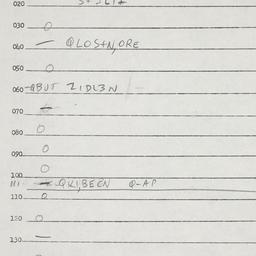 020
030 O
040 — QLOSTN,ORE
050 O
060 -QBUT ZIDL3N
070
080 O
090 O
100 O
111 QKI,BEEN Q-AP
110 O
120 O
130 —